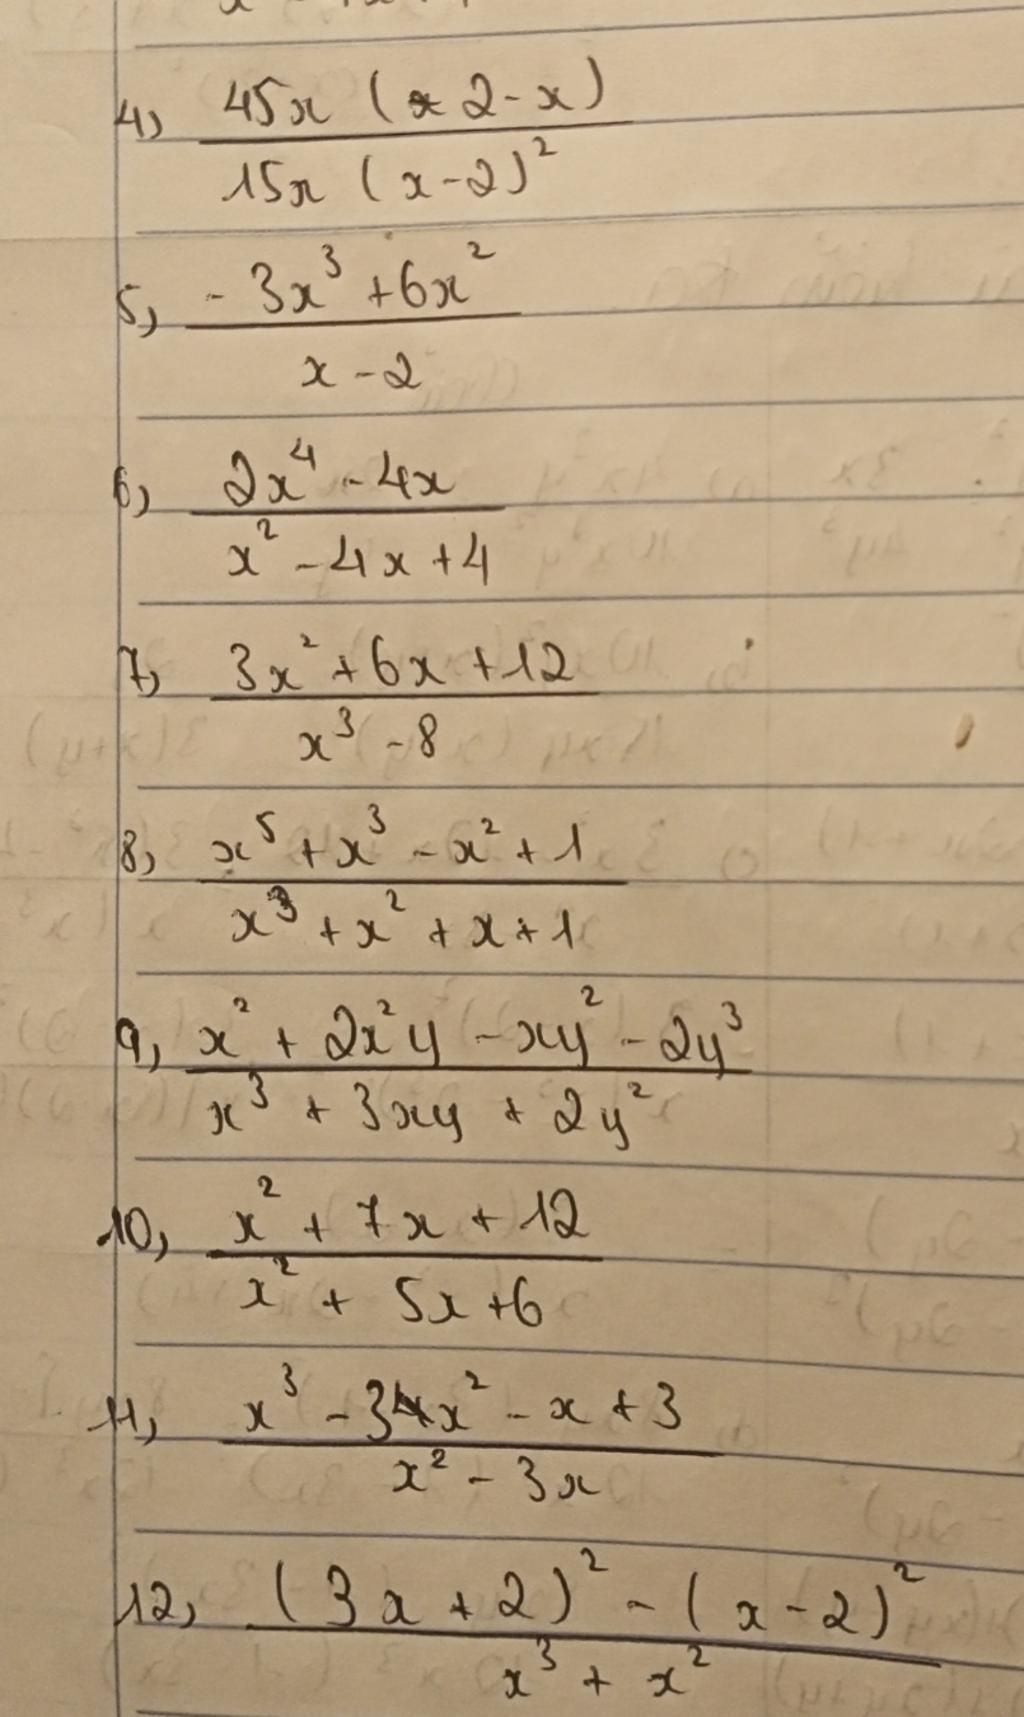 4, 45x (2-x)
15x (x-2)²
5, -3x³ +6x²
x-2
6, 2x⁴ - 4x
x² - 4x + 4
7, 3x² + 6x + 12
x³ - 8
8, x⁵ + x³ - x² + 1
x³ + x² + x + 1
9, x² + 2x²y - xy² - 2y³
x³ + 3xy + 2y²
10, x² + 7x + 12
x² + 5x + 6
11, x³ - 3x² - x + 3
x² - 3x
12, (3x + 2)² - (x - 2)²
x³ + x²